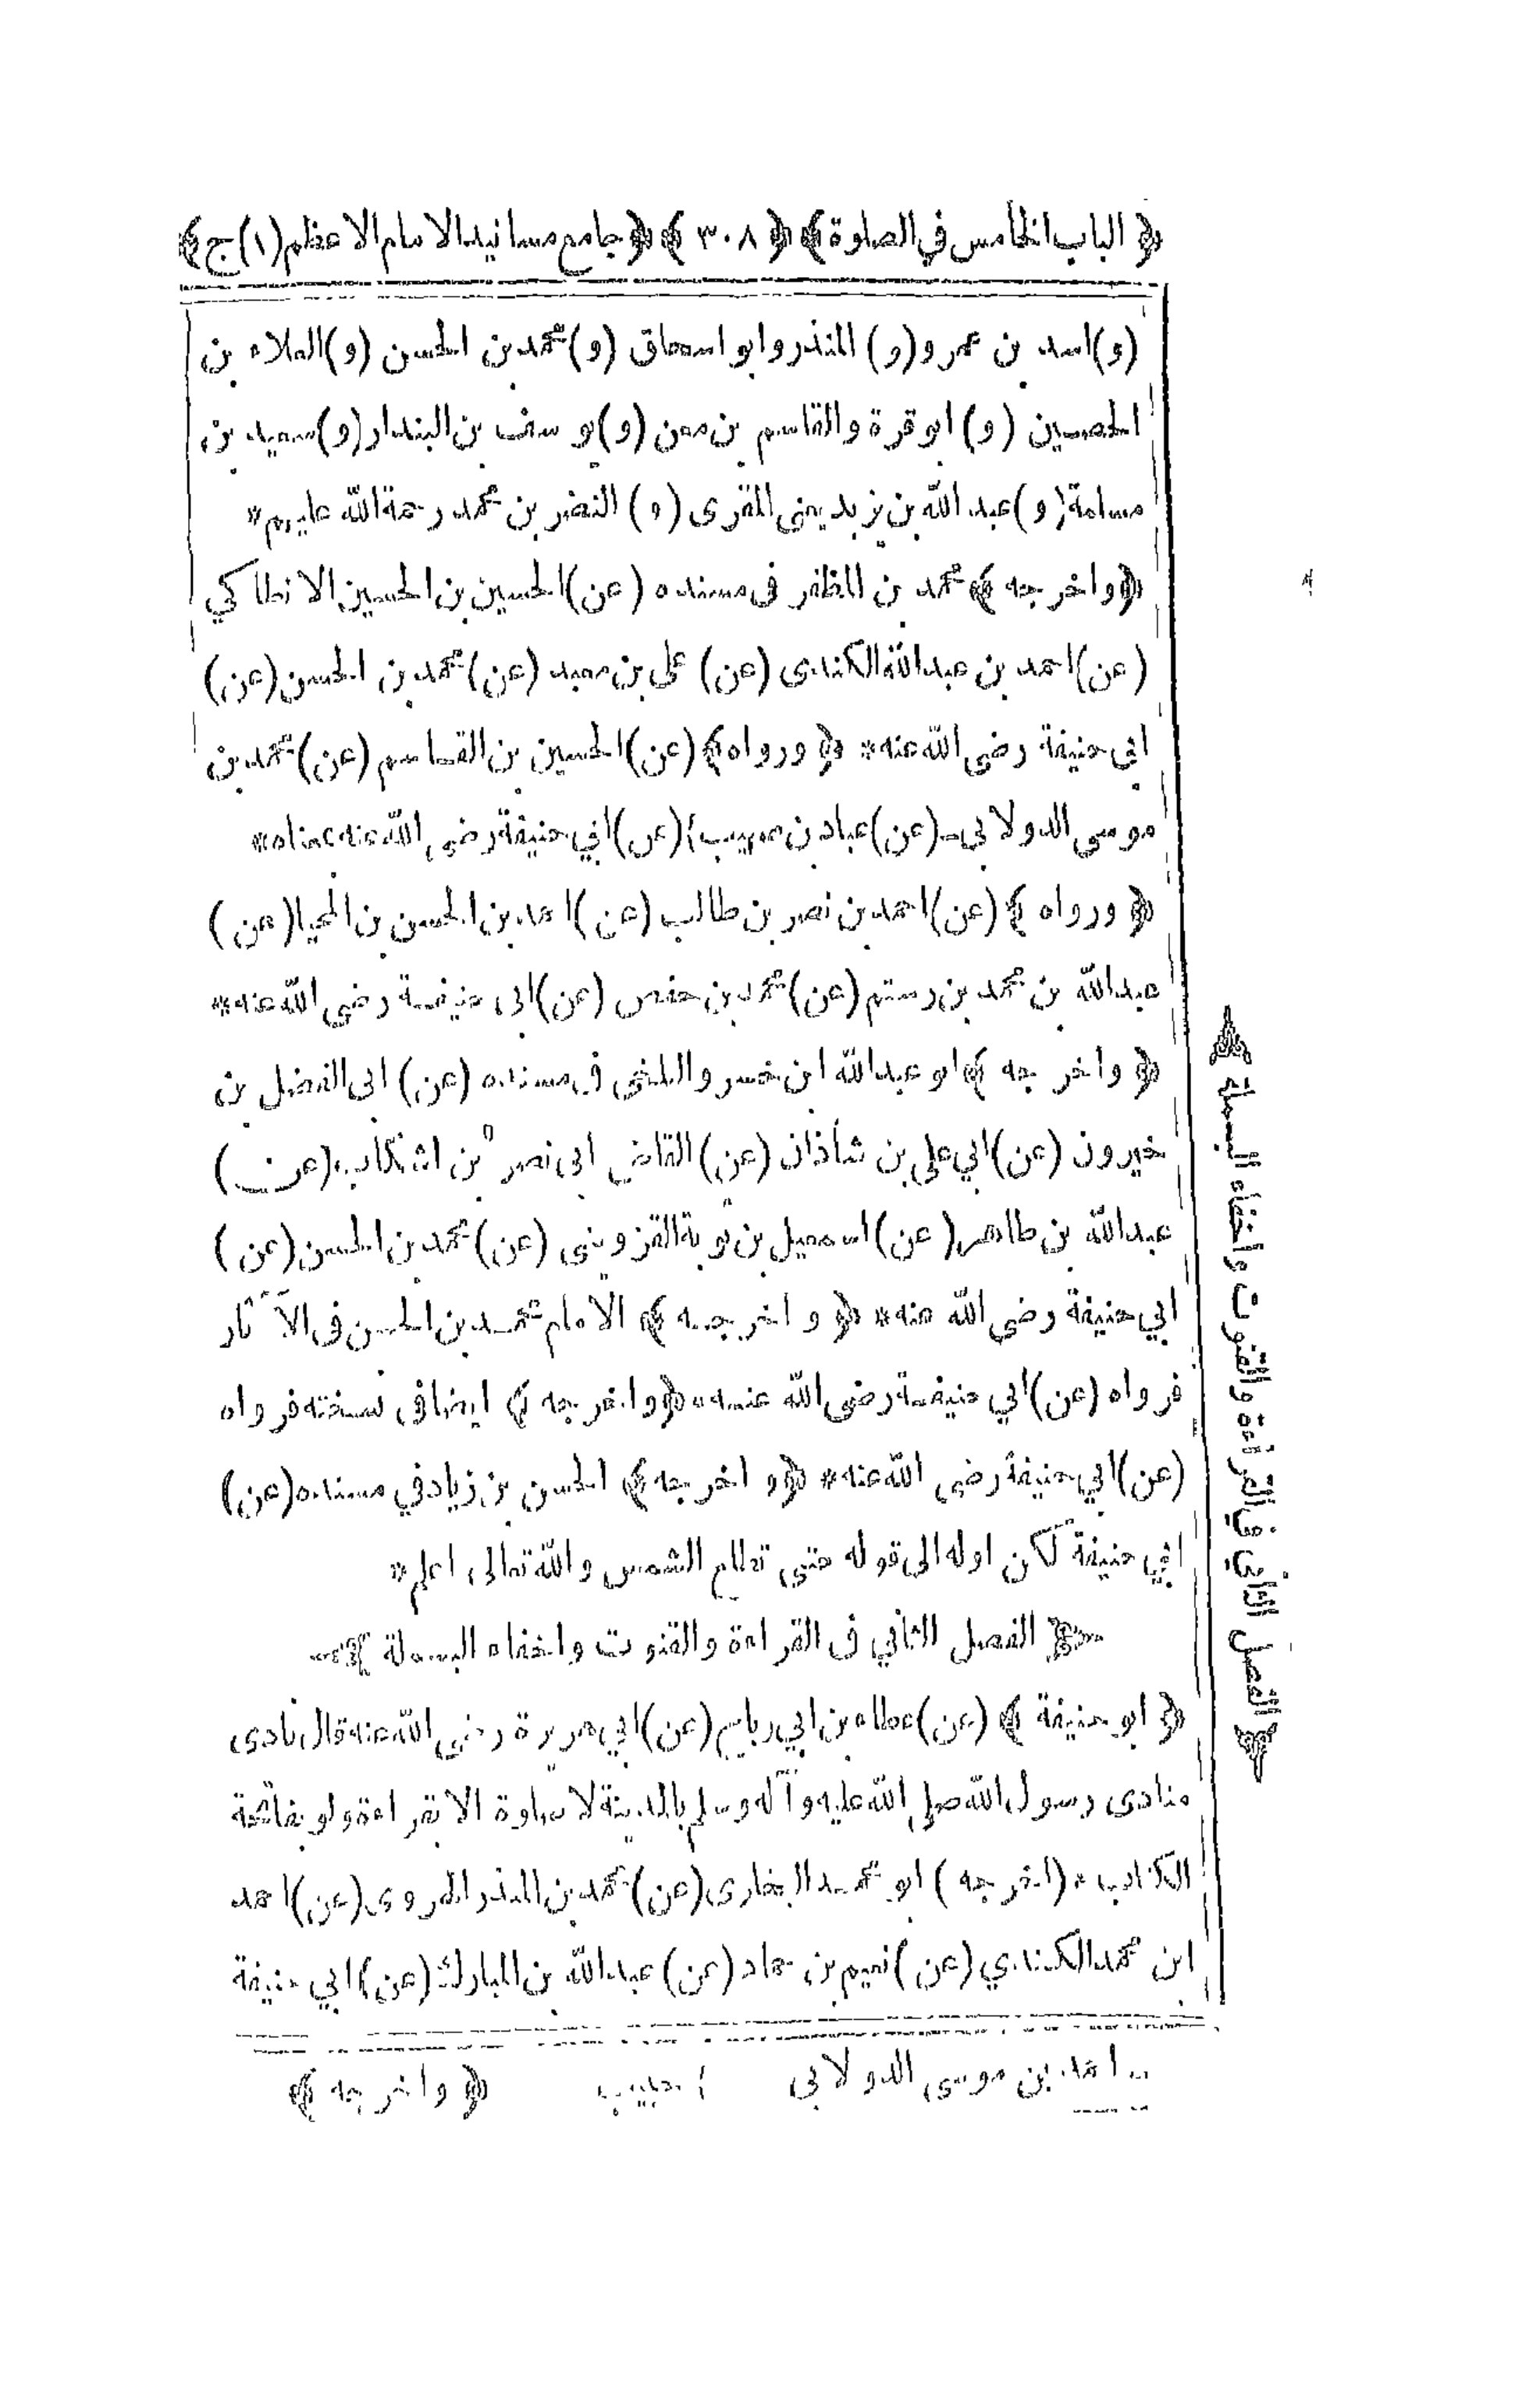 ﴿ الباب الخامس في الصلوة ﴾ ﴿ ٣٠٨ ﴾ ﴿ جامع مسانيد الامام الاعظم (١) ج ﴾
(و) اسد بن عمرو (و) المنذر وابو اسحاق (و) محمد بن الحسن (و) العلاء بن
الحصين (و) ابو قرة والقاسم بن معن (و) يوسف بن البندار (و) سعيد بن
مسلمة (و) عبد الله بن يزيد يعنى المقرى (و) النضر بن محمد رحمة الله عليهم *
﴿ واخرجه ﴾ محمد بن المظفر فى مسنده (عن) الحسين بن الحسين الانطاكي
(عن) احمد بن عبد الله الكندى (عن) على بن معبد (عن) محمد بن الحسن (عن)
ابى حنيفة رضى الله عنه * ﴿ ورواه ﴾ (عن) الحسين بن القاسم (عن) محمد بن
موسى الدولابى (عن) عباد بن صهيب (عن) ابي حنيفة رضى الله عنه عناه *
﴿ ورواه ﴾ (عن) احمد بن نصر بن طالب (عن) احمد بن الحسن بن المحيا (عن)
عبد الله بن محمد بن رستم (عن) محمد بن حفص (عن) ابى حنيفة رضى الله عنه *
﴿ واخرجه ﴾ ابو عبد الله ابن خسرو البلخى فى مسنده (عن) ابى الفضل بن
خيرون (عن) ابي على بن شاذان (عن) القاضى ابى نصر بن اشكاب (عن)
عبد الله بن طاهر (عن) اسمعيل بن توبة القزوينى (عن) محمد بن الحسن (عن)
ابي حنيفة رضى الله عنه * ﴿ واخرجه ﴾ الامام محمد بن الحسن فى الآثار
فرواه (عن) ابي حنيفة رضى الله عنه * ﴿ واخرجه ﴾ ايضا فى نسخته فرواه
(عن) ابي حنيفة رضى الله عنه * ﴿ واخرجه ﴾ الحسن بن زياد في مسنده (عن)
ابي حنيفة لكن اوله الى قوله حتى تطلع الشمس والله تعالى اعلم *
﴿ الفصل الثاني فى القراءة والقنوت واخفاء البسملة ﴾
﴿ ابو حنيفة ﴾ (عن) عطاء بن ابي رباح (عن) ابي هريرة رضى الله عنه قال نادى
منادى رسول الله صلى الله عليه وآله وسلم بالمدينة لا صلوة الا بقراءة ولو بفاتحة
الكتاب * (اخرجه) ابو محمد البخارى (عن) محمد بن المنذر الهروى (عن) احمد
ابن محمد الكندي (عن) نعيم بن حماد (عن) عبد الله بن المبارك (عن) ابي حنيفة
احمد بن موسى الدولابى
حبيب
﴿ واخرجه ﴾
الفصل الثاني في القراءة والقنوت واخفاء البسملة